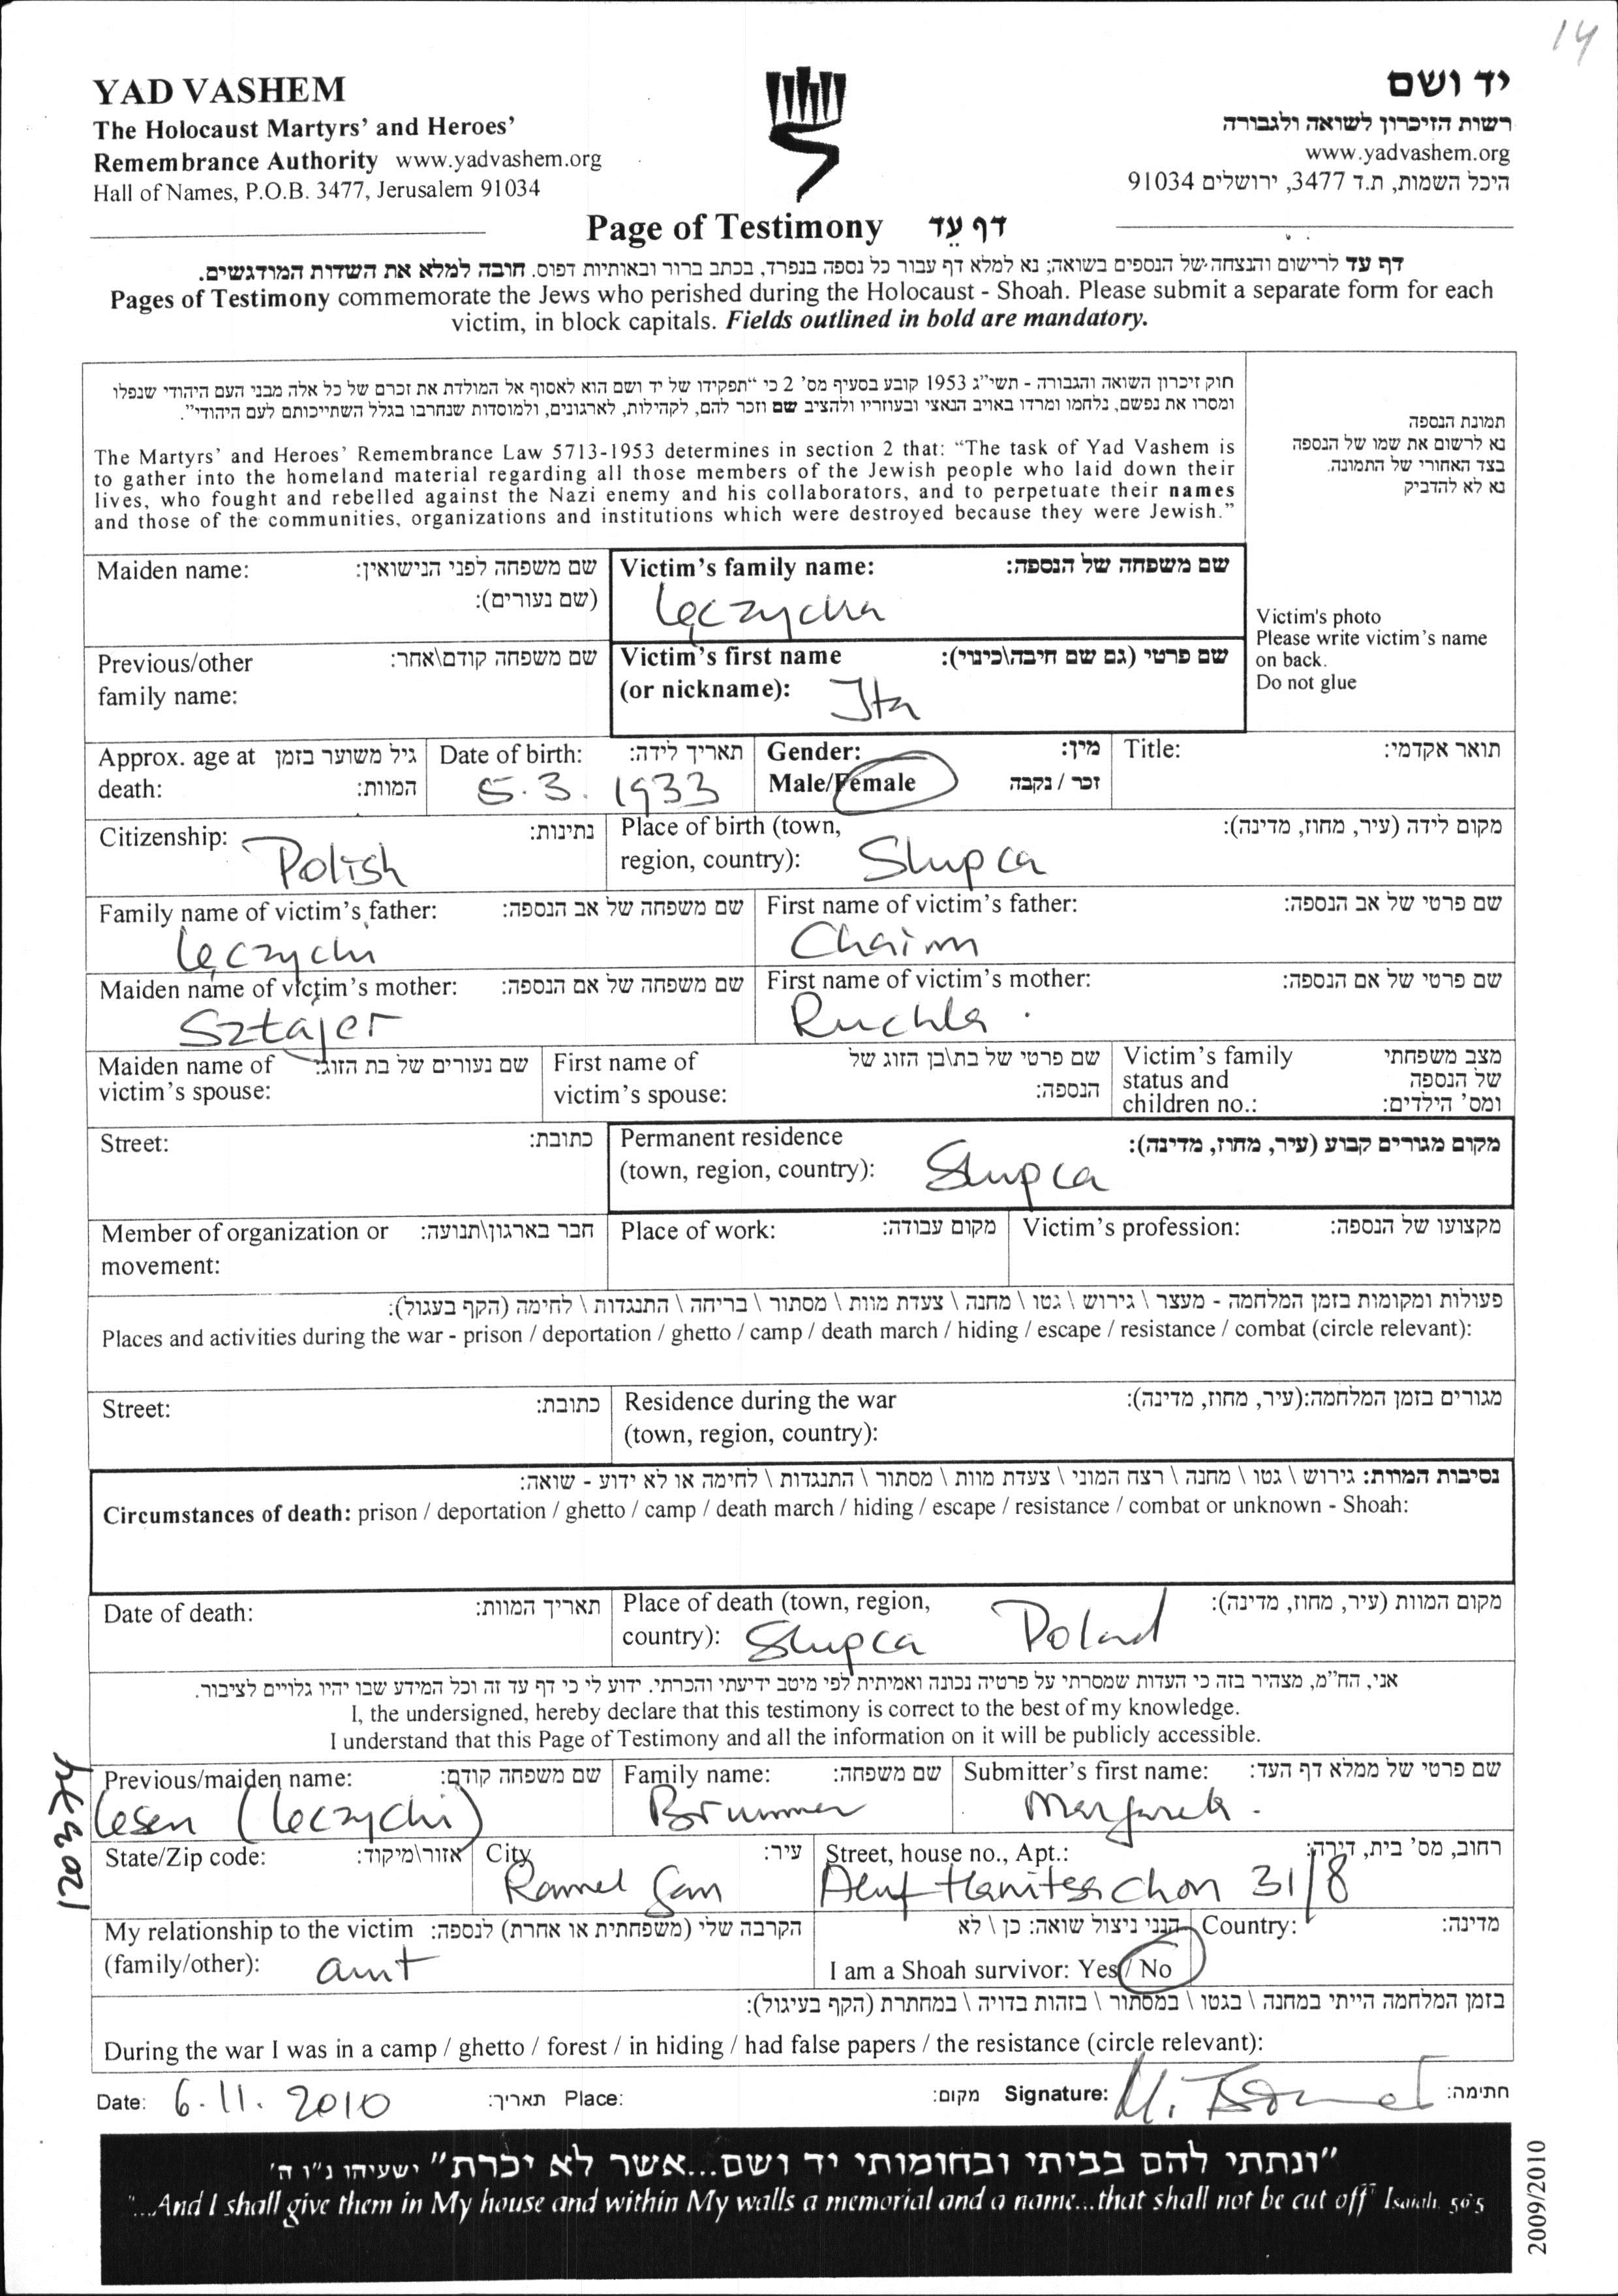 14
YAD VASHEM
The Holocaust Martyrs' and Heroes'
Remembrance Authority www.yadvashem.org
Hall of Names, P.O.B. 3477, Jerusalem 91034
יד ושם
רשות הזיכרון לשואה ולגבורה
www.yadvashem.org
היכל השמות, ת.ד 3477, ירושלים 91034
Page of Testimony דף עֵד
דף עד לרישום והנצחה של הנספים בשואה; נא למלא דף עבור כל נספה בנפרד, בכתב ברור ובאותיות דפוס. חובה למלא את השדות המודגשים.
Pages of Testimony commemorate the Jews who perished during the Holocaust - Shoah. Please submit a separate form for each
victim, in block capitals. Fields outlined in bold are mandatory.
חוק זיכרון השואה והגבורה - תשי"ג 1953 קובע בסעיף מס' 2 כי "תפקידו של יד ושם הוא לאסוף אל המולדת את זכרם של כל אלה מבני העם היהודי שנפלו
ומסרו את נפשם, נלחמו ומרדו באויב הנאצי ובעוזריו ולהציב שם וזכר להם, לקהילות, לארגונים, ולמוסדות שנחרבו בגלל השתייכותם לעם היהודי".
The Martyrs' and Heroes' Remembrance Law 5713-1953 determines in section 2 that: "The task of Yad Vashem is
to gather into the homeland material regarding all those members of the Jewish people who laid down their
lives, who fought and rebelled against the Nazi enemy and his collaborators, and to perpetuate their names
and those of the communities, organizations and institutions which were destroyed because they were Jewish."
תמונת הנספה
נא לרשום את שמו של הנספה
בצד האחורי של התמונה.
נא לא להדביק
Victim's photo
Please write victim's name
on back.
Do not glue
Maiden name: שם משפחה לפני הנישואין:
(שם נעורים):
Victim's family name: שם משפחה של הנספה:
Łęczycka
Previous/other שם משפחה קודם\אחר:
family name:
Victim's first name שם פרטי (גם שם חיבה\כינוי):
(or nickname): Ita
Approx. age at גיל משוער בזמן
death: המוות:
Date of birth: תאריך לידה:
5.3.1933
Gender: מין:
Male/Female זכר / נקבה
Title: תואר אקדמי:
Citizenship: נתינות:
Polish
Place of birth (town, מקום לידה (עיר, מחוז, מדינה):
region, country): Słupca
Family name of victim's father: שם משפחה של אב הנספה:
Łęczycki
First name of victim's father: שם פרטי של אב הנספה:
Chaim
Maiden name of victim's mother: שם משפחה של אם הנספה:
Sztajer
First name of victim's mother: שם פרטי של אם הנספה:
Ruchla
Maiden name of שם נעורים של בת הזוג:
victim's spouse:
First name of שם פרטי של בת\בן הזוג של
victim's spouse: הנספה:
Victim's family מצב משפחתי
status and של הנספה
children no.: ומס' הילדים:
Street: כתובת:
Permanent residence מקום מגורים קבוע (עיר, מחוז, מדינה):
(town, region, country): Słupca
Member of organization or חבר בארגון\תנועה:
movement:
Place of work: מקום עבודה:
Victim's profession: מקצועו של הנספה:
פעולות ומקומות בזמן המלחמה - מעצר \ גירוש \ גטו \ מחנה \ צעדת מוות \ מסתור \ בריחה \ התנגדות \ לחימה (הקף בעגול):
Places and activities during the war - prison / deportation / ghetto / camp / death march / hiding / escape / resistance / combat (circle relevant):
Street: כתובת:
Residence during the war מגורים בזמן המלחמה:(עיר, מחוז, מדינה):
(town, region, country):
נסיבות המוות: גירוש \ גטו \ מחנה \ רצח המוני \ צעדת מוות \ מסתור \ התנגדות \ לחימה או לא ידוע - שואה:
Circumstances of death: prison / deportation / ghetto / camp / death march / hiding / escape / resistance / combat or unknown - Shoah:
Date of death: תאריך המוות:
Place of death (town, region, מקום המוות (עיר, מחוז, מדינה):
country): Słupca Poland
אני, הח"מ, מצהיר בזה כי העדות שמסרתי על פרטיה נכונה ואמיתית לפי מיטב ידיעתי והכרתי. ידוע לי כי דף עד זה וכל המידע שבו יהיו גלויים לציבור.
I, the undersigned, hereby declare that this testimony is correct to the best of my knowledge.
I understand that this Page of Testimony and all the information on it will be publicly accessible.
Previous/maiden name: שם משפחה קודם:
Lesen (Łeczycki)
Family name: שם משפחה:
Brummer
Submitter's first name: שם פרטי של ממלא דף העד:
Margareta
State/Zip code: אזור\מיקוד:
City עיר:
Ramat Gan
Street, house no., Apt.: רחוב, מס' בית, דירה:
Aluf Hanitsachon 31/8
My relationship to the victim הקרבה שלי (משפחתית או אחרת) לנספה:
(family/other): aunt
הנני ניצול שואה: כן \ לא
I am a Shoah survivor: Yes / No
Country: מדינה:
בזמן המלחמה הייתי במחנה \ בגטו \ במסתור \ בזהות בדויה \ במחתרת (הקף בעיגול):
During the war I was in a camp / ghetto / forest / in hiding / had false papers / the resistance (circle relevant):
Date: 6.11.2010 תאריך: Place: מקום: Signature: חתימה:
"ונתתי להם בביתי ובחומותי יד ושם...אשר לא יכרת" ישעיהו נ"ו ה'
"...And I shall give them in My house and within My walls a memorial and a name...that shall not be cut off" Isaiah. 56 5
2009/2010